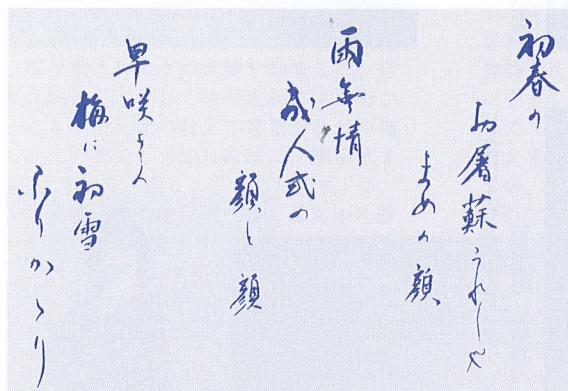 初春の
お屠蘇うれしや
よめの顔
雨無情
成人式の
顔と顔
早咲きの
梅に初雪
ふりかゝり